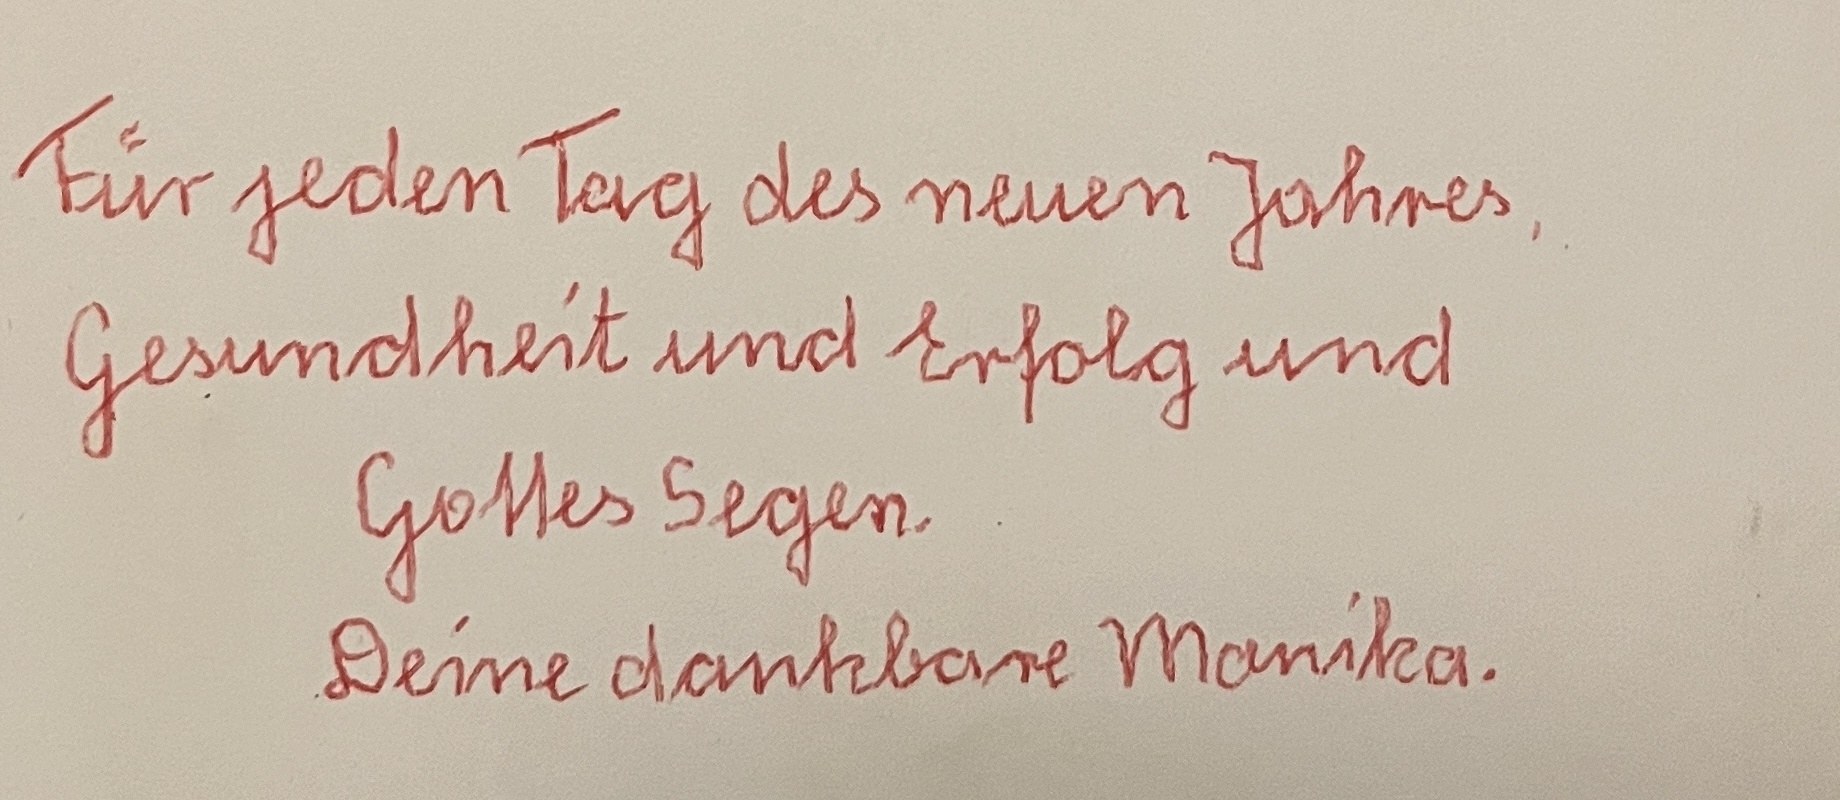 Für jeden Tag des neuen Jahres,
Gesundheit und Erfolg und
Gottes Segen.
Deine dankbare Manika.